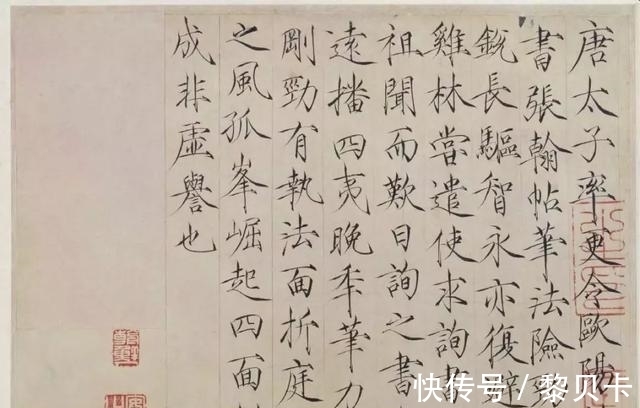 唐太子率更令歐陽
書張翰帖筆法險勁
銳長驅智永亦復避
雞林嘗遣使求詢書
祖聞而歎曰詢之書
遠播四夷晚年筆力
剛勁有執法面折庭
之風孤峯崛起四面
成非虛譽也
快传号 / 黎贝卡